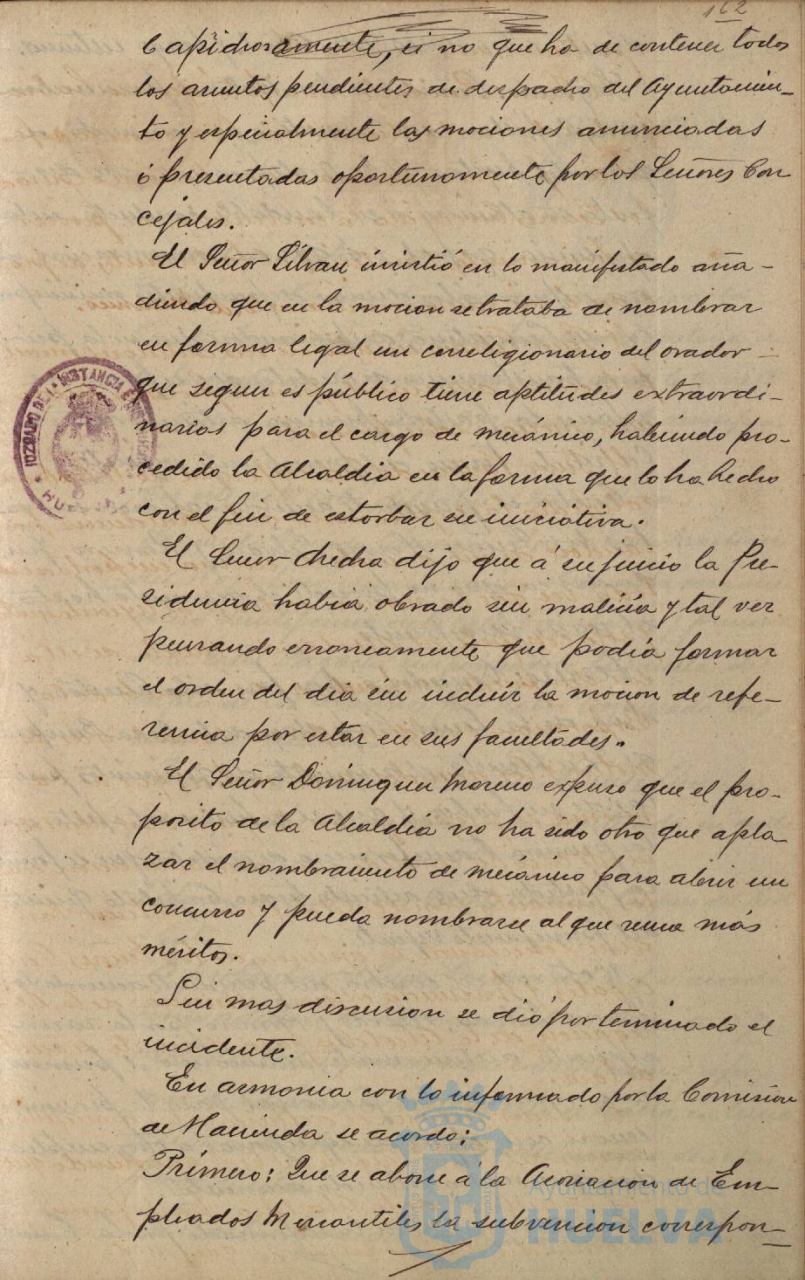 162
capidrosamente, si no que ha de contener todos
los asuntos pendientes de despacho del Ayuntamien-
to y especialmente las mociones anunciadas
ó presentadas oportunamente por los Señores Con
cejales.
El Señor Silvan insistió en lo manifestado aña-
diendo que en la mocion se trataba de nombrar
en forma legal un correligionario del orador
que segun es público tiene aptitudes extraordi-
narias para el cargo de mecánico, habiendo pro-
cedido la Alcaldia en la forma que lo ha hecho
con el fin de estorbar su iniciativa.
El Señor Checha dijo que á su juicio la Pre-
sidencia habia obrado sin malicia y tal vez
pensando erroneamente que podía formar
el orden del dia sin incluir la mocion de refe-
rencia por estar en sus facultades.
El Señor Dominguez Moreno expuso que el pro-
posito de la Alcaldia no ha sido otro que apla
zar el nombramiento de mecánico para abrir un
concurso y pueda nombrarse al que reuna más
méritos.
Sin mas discusion se dió por terminado el
incidente.
En armonia con lo informado por la Comision
de Hacienda se acordo:
Primero: Que se abone á la Asociacion de Em-
pleados Mercantiles la subvencion correspon-
JUZGADO DE 1ª INSTANCIA E
HU
Ayuntamiento de
HUELVA